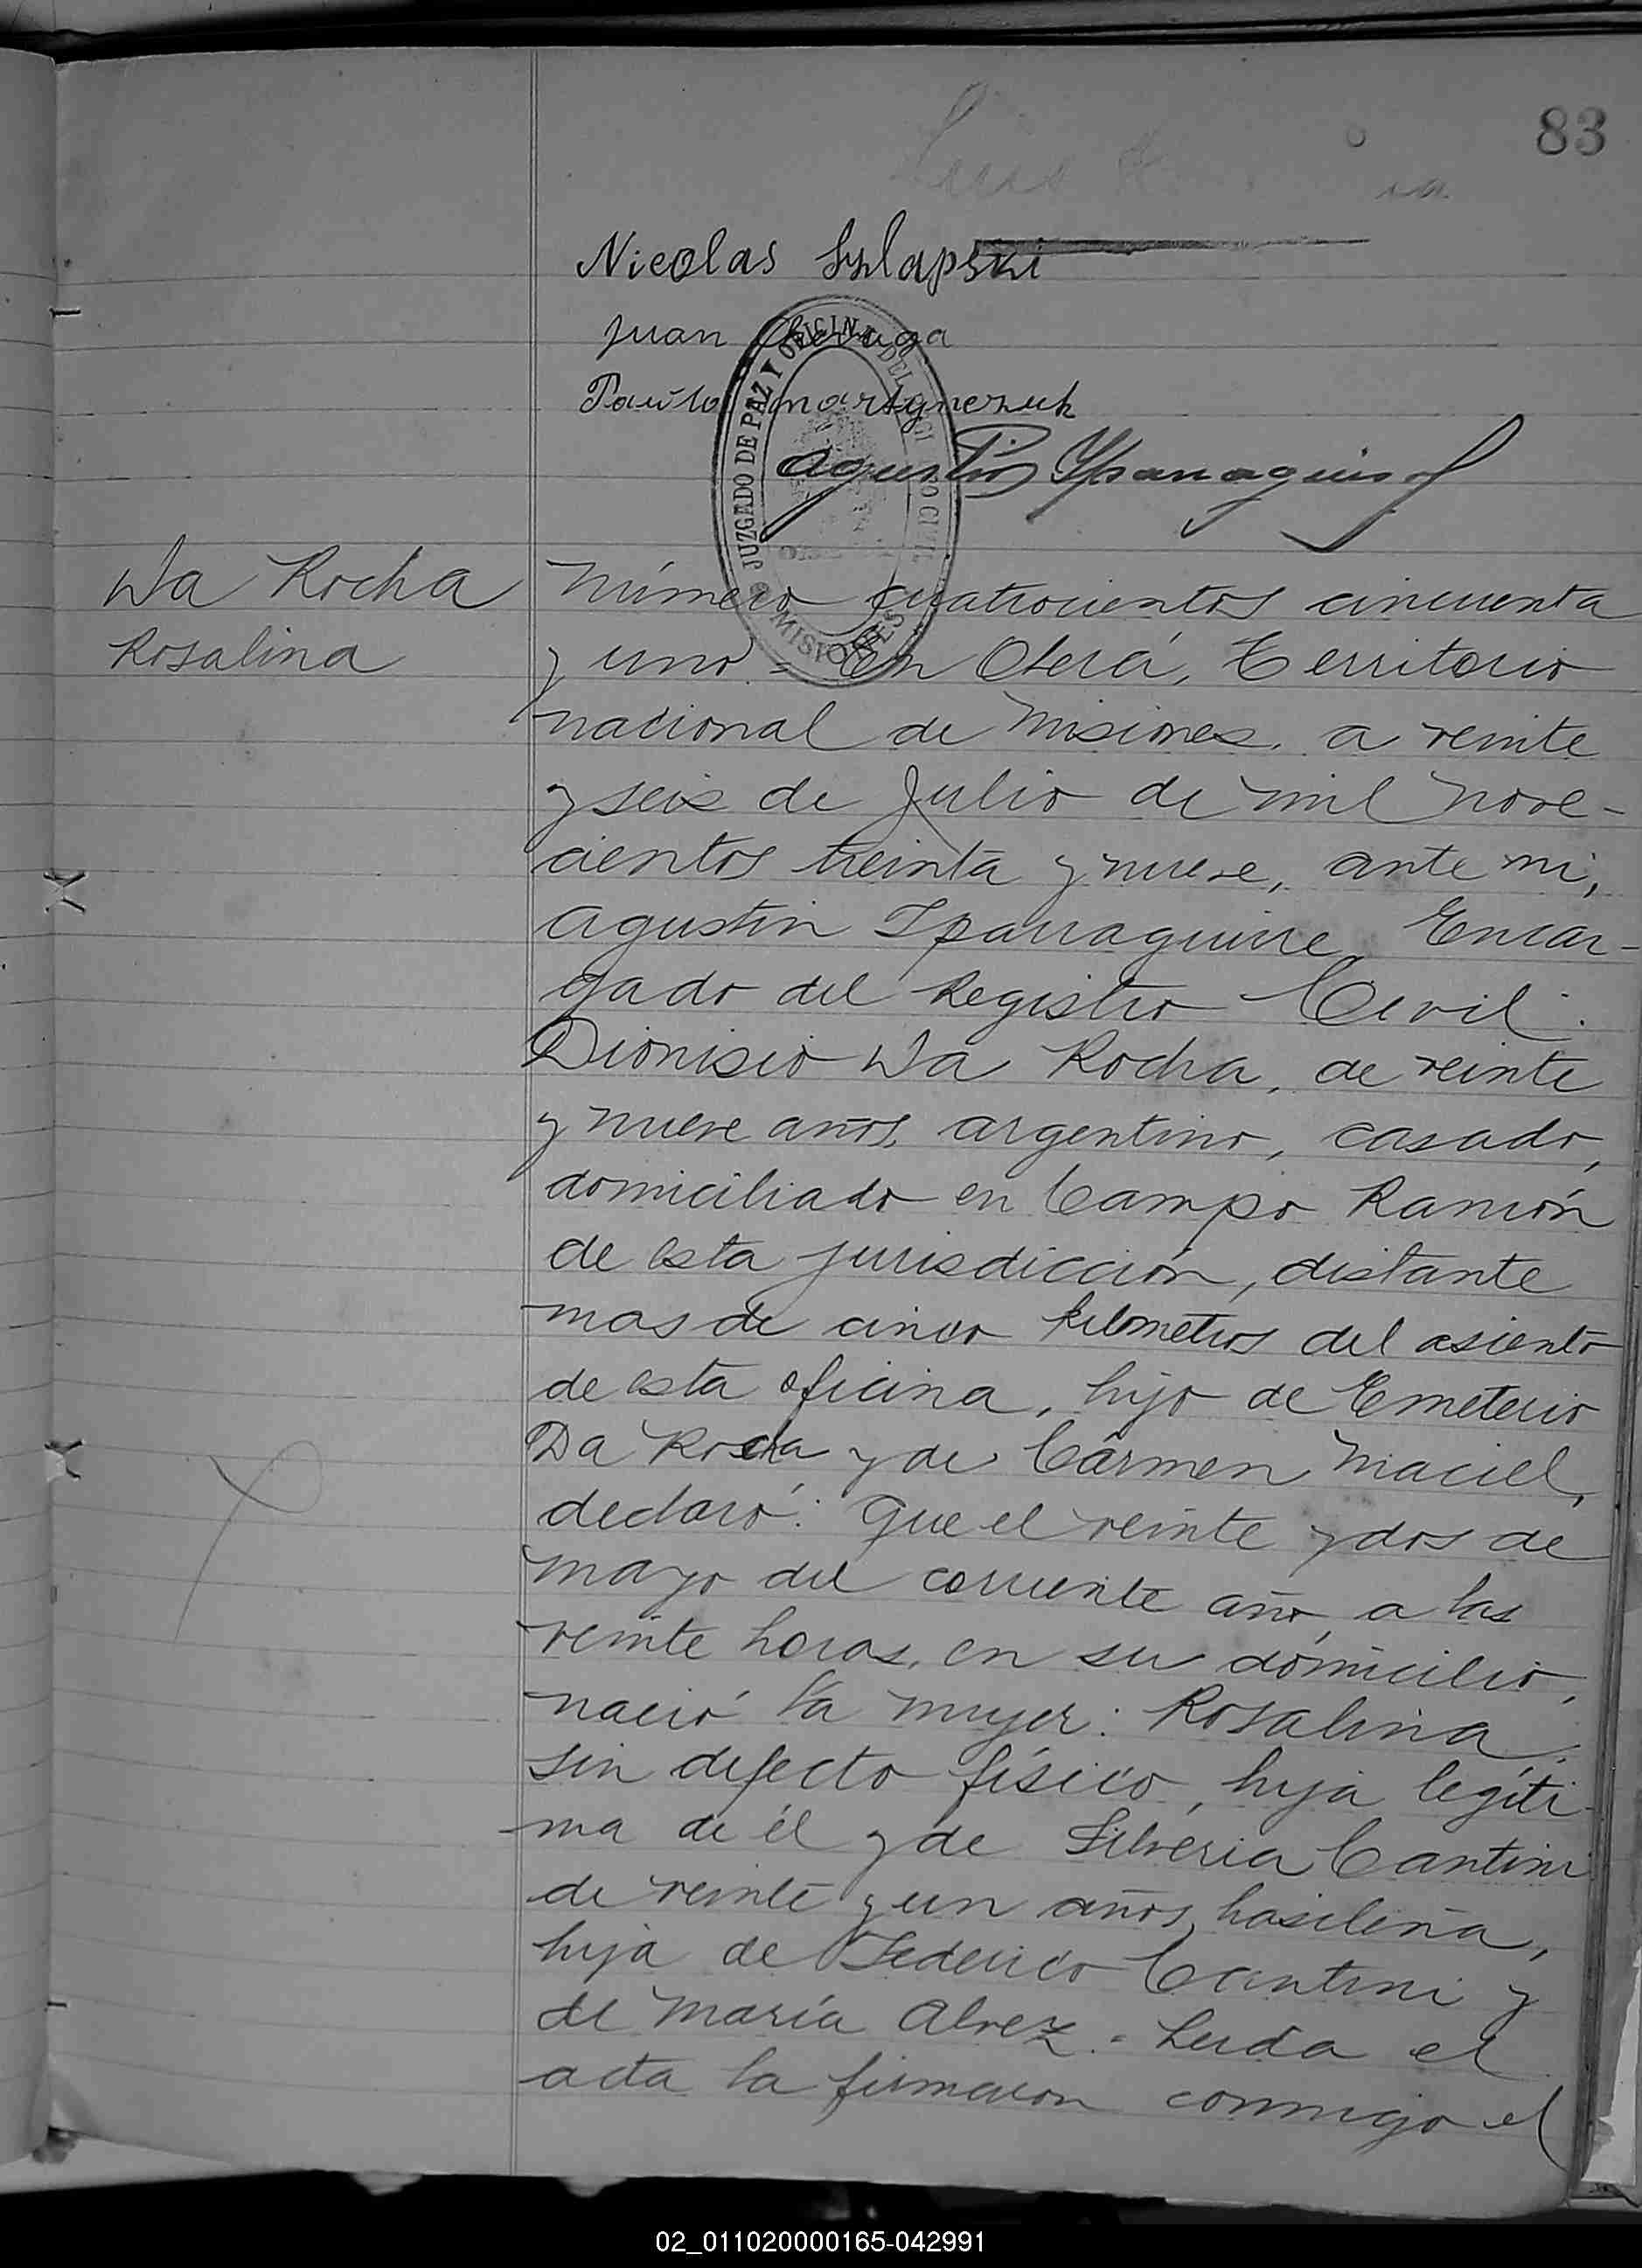 83
Nicolas Szlapski
Juan
Pawlo
Agustin Yparraguirre
JUZGADO DE PAZ Y OFICINA DEL REGISTRO CIVIL
MISIONES
Da Rocha
Rosalina
Número cuatrocientos cincuenta
y uno = En Oberá, Territorio
nacional de Misiones, a veinte
y seis de Julio de mil nove-
cientos treinta y nueve, ante mi,
Agustin Iparraguirre, Encar-
gado del Registro Civil.
Dionisio Da Rocha, de veinte
y nueve años, argentino, casado,
domiciliado en Campo Ramón
de esta jurisdicción, distante
mas de cinco kilometros del asiento
de esta oficina, hijo de Emeterio
Da Rocha y de Cármen Maciel,
declaró: Que el veinte y dos de
mayo del corriente año, a las
veinte horas, en su domicilio,
nació la mujer: Rosalina,
sin defecto físico, hija legíti-
ma de él y de Silveria Cantini
de veinte y un años, brasileña,
hija de Federico Cantini y
de María Alvez. = Leida el
acta la firmaron conmigo el
02_011020000165-042991